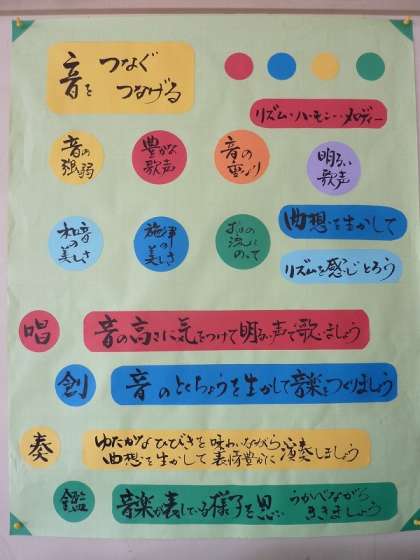 音を つなぐ
つなげる
リズム・ハーモニー・メロディー
音の
強弱
豊かな
歌声
音の
重なり
明るい
歌声
和音
の
美しさ
旋律
の
美しさ
音の
流れに
のって
曲想を生かして
リズムを感じとろう
唱
音の高さに気をつけて明るい声で歌いましょう
創
音のとくちょうを生かして音楽をつくりましょう
奏
ゆたかなひびきを味わいながら
曲想を生かして表情豊かに演奏しましょう
鑑
音楽が表している様子を思い
うかべながら
ききましょう